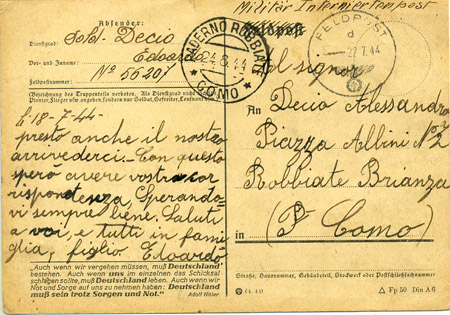 Militär Internierten post
Absender:
Feldpost
Dienstgrad: Sold. Decio
Vor- und Zuname Edoardo
Feldpostnummer: Nº 56201
(Bezeichnung des Truppenteils verboten. Als Dienstgrad nicht
Pionier, Flieger usw. angeben, sondern nur Soldat, Gefreiter,
PADERNO ROBBIATE
24.8.44
* COMO *
FELDPOST
d
27.7.44
Al signor
An Decio Alessandro
Piazza Albini Nº 2
Robbiate Brianza
in (Pr Como)
Li 18-7-44-
presto anche il nostro
arrivederci. Con questo
spero avere vostra cor
rispondenza, Sperando
vi sempre bene. Saluti
a voi, e tutti in fami
glia, figlio. Edoardo
„Auch wenn wir vergehen müssen, muß Deutschland
bestehen. Auch wenn uns im einzelnen das Schicksal
schlagen sollte, muß Deutschland leben. Auch wenn wir
Not und Sorge auf uns zu nehmen haben: Deutschland
muß sein trotz Sorgen und Not."
Adolf Hitler.
Straße, Hausnummer, Gebäudeteil, Stockwerk oder Postschließfachnummer
Fp 50 Din A 6